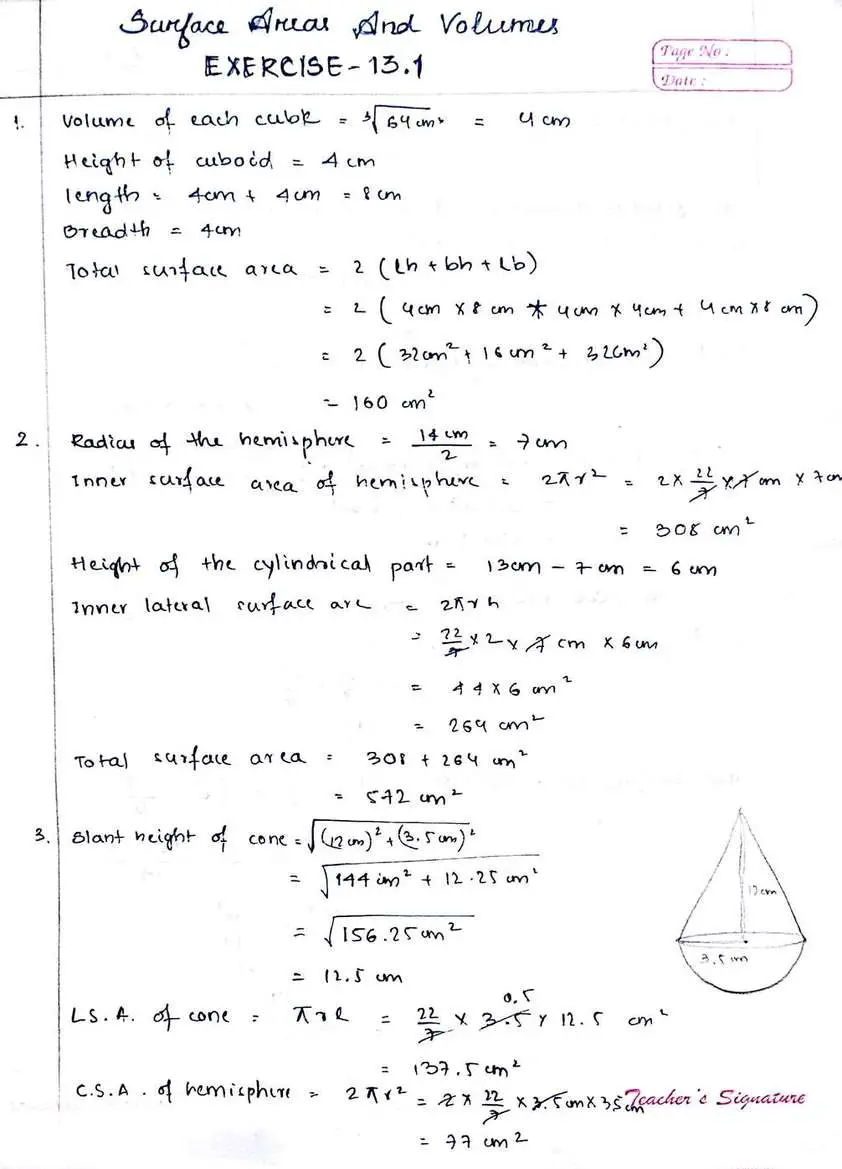 Surface Areas And Volumes
EXERCISE-13.1
Page No :
Date :
1. Volume of each cube = ³√64cm³ = 4 cm
Height of cuboid = 4 cm
length = 4cm + 4cm = 8cm
Breadth = 4cm
Total surface area = 2 (lh + bh + lb)
= 2 ( 4cm × 8 cm * 4cm × 4cm + 4 cm × 8 cm)
= 2 ( 32cm² + 16 cm² + 32cm²)
= 160 cm²
2. Radius of the hemisphere = 14 cm/2 = 7cm
Inner surface area of hemisphere = 2πr² = 2 × 22/7 × 7 cm × 7cm
= 308 cm²
Height of the cylindrical part = 13cm - 7cm = 6 cm
Inner lateral surface are = 2πrh
= 22/7 × 2 × 7 cm × 6cm
= 44 × 6 cm²
= 264 cm²
Total surface area = 308 + 264 cm²
= 572 cm²
3. Slant height of cone = √(12cm)² + (3.5cm)²
= √144cm² + 12.25 cm²
= √156.25cm²
= 12.5 cm
12cm
3.5 cm
L.S.A. of cone = πrl = 22/7 × 3.5 0.5 × 12.5 cm²
= 137.5 cm²
C.S.A. of hemisphere = 2πr² = 2 × 22/7 × 3.5cm × 3.5cm
Teacher's Signature
= 77 cm²